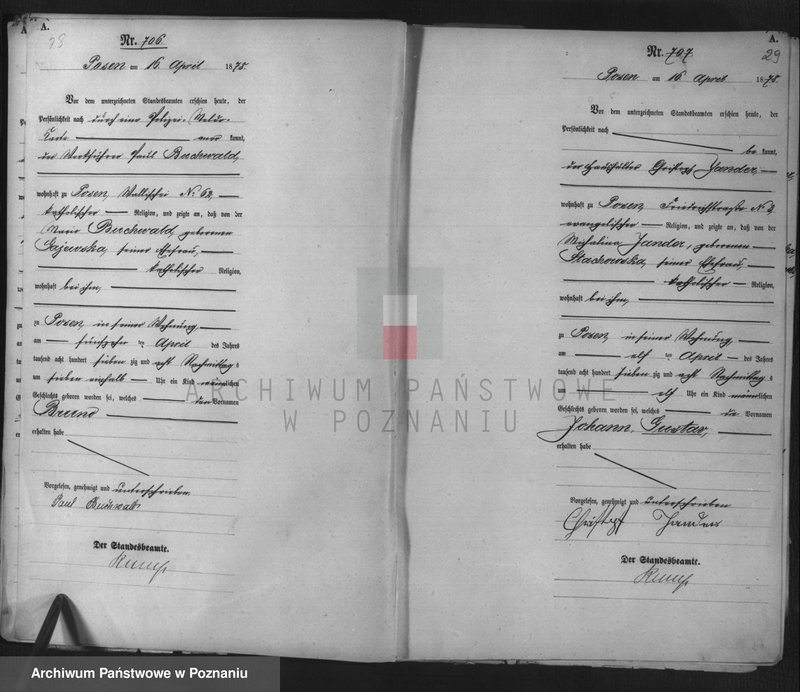 A.
Nr. 706.
Posen am 16 April 1878.
Vor dem unterzeichneten Standesbeamten erschien heute, der
Persönlichkeit nach durch eine Polizei-Melde-
Karte kannt,
der Werkführer Paul Buchwald,
wohnhaft zu Posen, Wallischei No 62,
katholischer Religion, und zeigte an, daß von der
Marie Buchwald, geborenen
Gajewska, seiner Ehefrau,
katholischer Religion,
wohnhaft bei ihm,
zu Posen, in seiner Wohnung,
am fünfzehn ten April des Jahres
tausend acht hundert sieben zig und acht Nachmittags
um sieben einhalb Uhr ein Kind männlichen
Geschlechts geboren worden sei, welches den Vornamen
Bruno
erhalten habe
Vorgelesen, genehmigt und unterschrieben
Paul Buchwald
Der Standesbeamte.
A.
29
Nr. 707.
Posen am 16 April 1878.
Vor dem unterzeichneten Standesbeamten erschien heute, der
Persönlichkeit nach
be kannt,
der Haushälter Christoph Jander,
wohnhaft zu Posen, Friedrichstraße No
evangelischer Religion, und zeigte an, daß von der
Michalina Jander, geborenen
Stachowska, seiner Ehefrau,
katholischer Religion,
wohnhaft bei ihm,
zu Posen, in seiner Wohnung
am elf ten April des Jahres
tausend acht hundert sieben zig und acht Nachmittags
um elf Uhr ein Kind männlichen
Geschlechts geboren worden sei, welches die Vornamen
Johann Gustav,
erhalten habe
Vorgelesen, genehmigt und unterschrieben
Christoph Jander
Der Standesbeamte.
ARCHIWUM PAŃSTWOWE
W POZNANIU
Archiwum Państwowe w Poznaniu